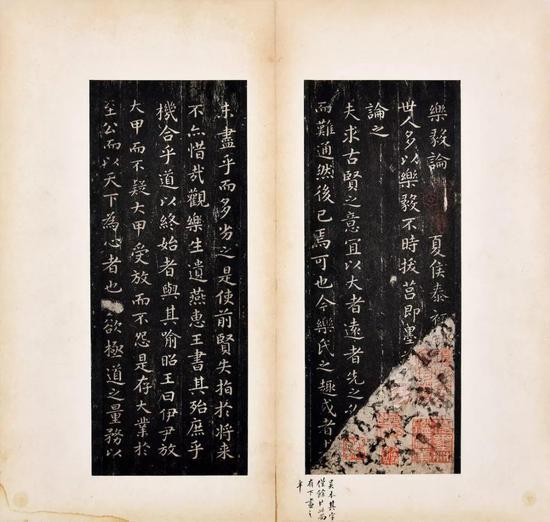 樂毅論 夏侯泰初
世人多以樂毅不時拔莒即墨
論之
夫求古賢之意宜以大者遠者先之
而難通然後已焉可也今樂氏之趣或者
未盡乎而多劣之是使前賢失指於將來
不亦惜哉觀樂生遺燕惠王書其殆庶乎
機合乎道以終始者與其喻昭王曰伊尹放
大甲而不疑大甲受放而不怨是存大業於
至公而以天下為心者也欲極道之量務以
吳本其字
半